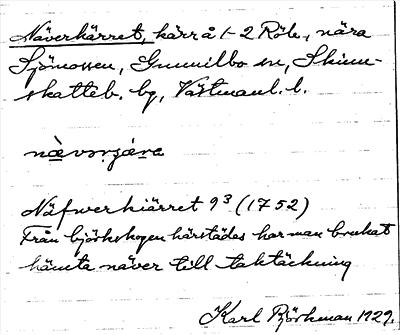 Näverkärret, kärr å 1-2 Röln, nära
Sjömossen, Gunnilbo sn, Skinn-
skatteb. bg, Västmanl. l.
nä̀vərçæ̀re
Näfwerkiärret 9³ (1752)
Från björkskogen härstädes har man brukat
hämta näver till taktäckning
Karl Björkman 1929.